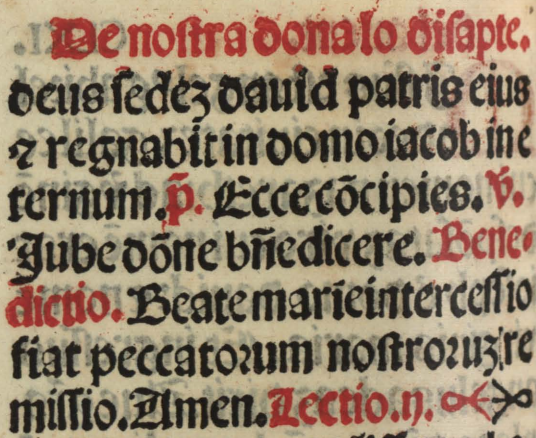 De nostra dona lo disapte.
deus sedeꝫ dauid patris eius
⁊ regnabit in domo iacob in e
ternum. p̄. Ecce cōcipies. v̄.
Jube dōne bn̄edicere. Bene-
dictio. Beate marie intercessio
fiat peccatoꝛum nostroꝛuꝫ re
missio. Amen. Lectio. ij.